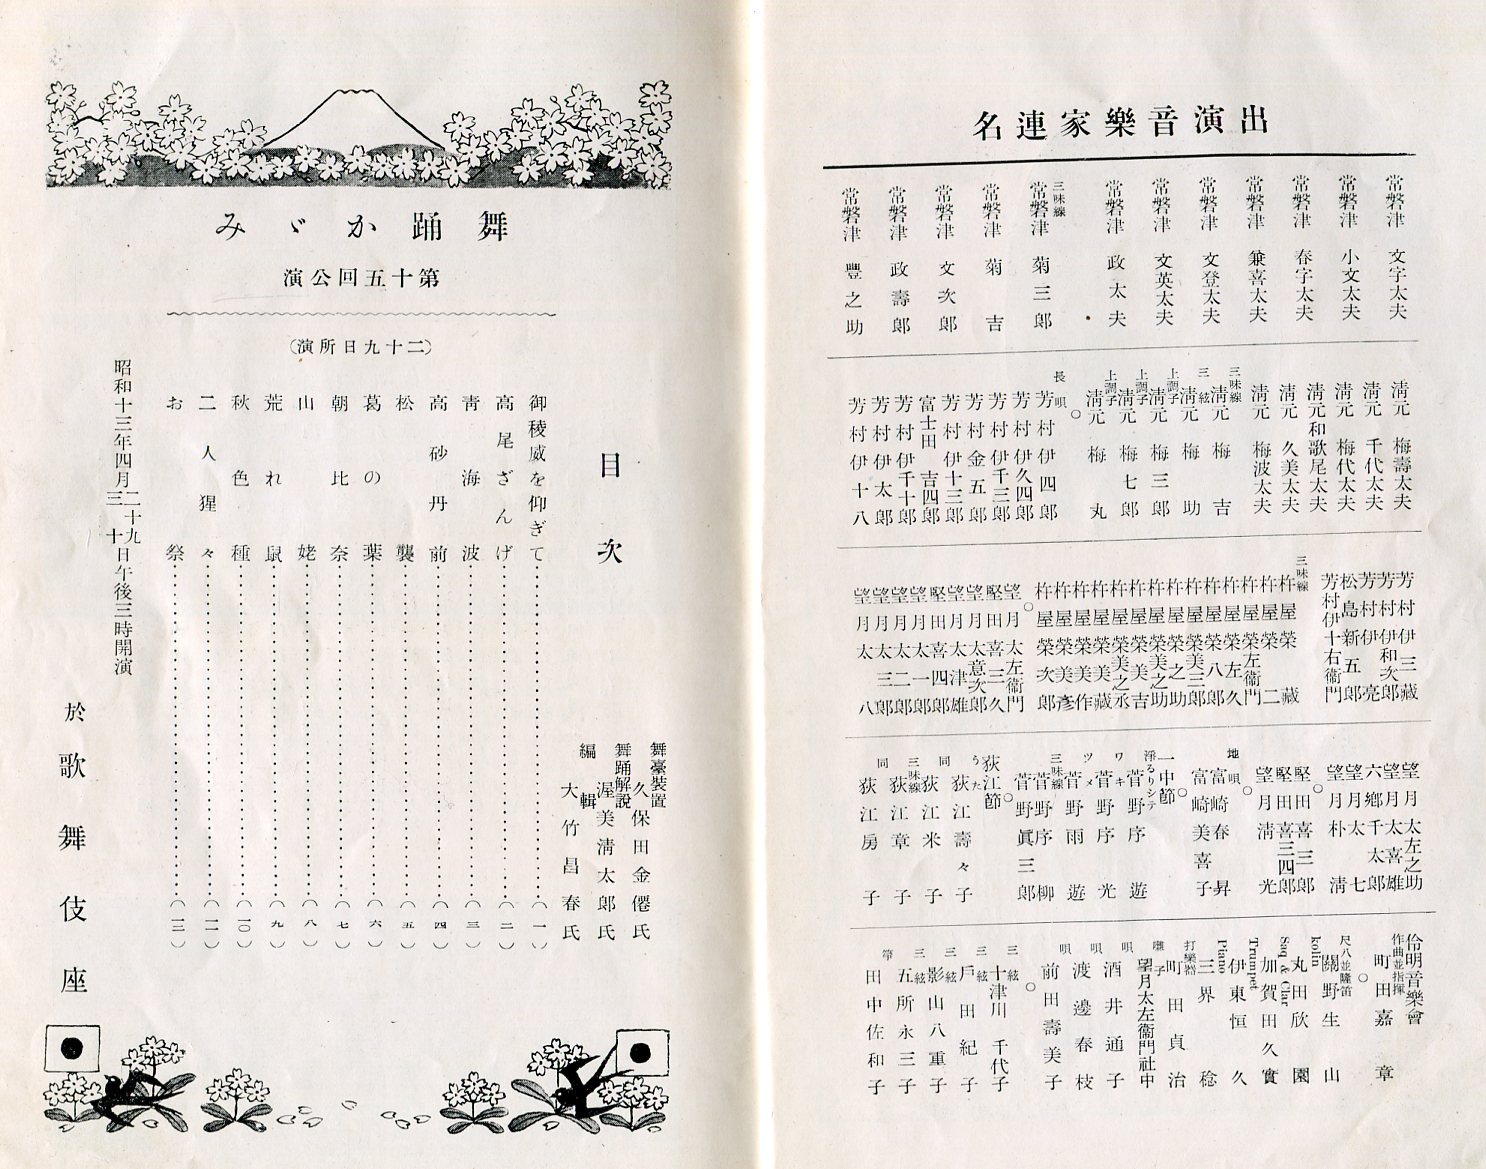 出演音樂家連名
常磐津 文字太夫
常磐津 小文太夫
常磐津 春字太夫
常磐津 兼喜太夫
常磐津 文登太夫
常磐津 文英太夫
常磐津 政太夫
三味線
常磐津 菊三郎
常磐津 菊吉
常磐津 文次郎
常磐津 政壽郎
常磐津 豐之助
淸元 梅壽太夫
淸元 千代太夫
淸元 梅代太夫
淸元和歌尾太夫
淸元 久美太夫
淸元 梅波太夫
三味線
淸元 梅吉
三絃
淸元 梅助
上調子
淸元 梅三郎
上調子
淸元 梅七郎
上調子
淸元 梅丸
○
長唄
芳村伊四郎
芳村伊久四郎
芳村伊千三郎
芳村金五郎
芳村伊十三郎
富士田吉四郎
芳村伊千十郎
芳村伊太郎
芳村伊十八
芳村伊三藏
芳村伊和次郎
芳村伊亮
松島新五郎
芳村伊十右衞門
三味線
杵屋榮藏
杵屋榮二
杵屋榮左衞門
杵屋榮左久
杵屋榮八郎
杵屋榮美三郎
杵屋榮之助
杵屋榮美之助
杵屋榮美吉
杵屋榮美之丞
杵屋榮美藏
杵屋榮美作
杵屋榮美彥
杵屋榮次郎
○
望月太左衞門
堅田喜三久
望月太意次郎
望月太津雄
堅田喜四郎
望月太一郎
望月太二郎
望月太三郎
望月太八
望月太左之助
望月太喜雄
六鄕千太郎
望月太七
望月朴淸
○
堅田喜三郎
堅田喜三四郎
望月淸光
○
地唄
富崎春昇
富崎美喜子
○
一中節
淨るりシテ
菅野序遊
ワキ
菅野序光
ツメ
菅野雨遊
三味線
菅野序柳
菅野眞三郎
○
荻江節
うた
荻江壽々子
同
荻江米子
三味線
荻江章子
同
荻江房子
伶明音樂會
作曲並指揮
町田嘉章
○
尺八並隆笛
關野生山
kolin
丸田欣園
Saq. & Clar
加賀田久實
Trumpet
伊東恒久
Piano
三界稔
打樂器
町田貞治
囃子
望月太左衞門社中
唄
酒井通子
唄
渡邊春枝
唄
前田壽美子
○
三絃
十津川千代子
三絃
戶田紀子
三絃
影山八重子
三絃
五所永三子
箏
田中佐和子
舞踊かゞみ
第十五回公演
(二十九日所演)
目次
御稜威を仰ぎて(一)
高尾ざんげ(二)
靑海波(三)
高砂丹前(四)
松襲(五)
葛の葉(六)
朝比奈(七)
山姥(八)
荒れ鼠(九)
秋色種(一〇)
二人猩々(一一)
お祭(一三)
舞臺裝置 久保田金僊氏
舞踊解說 渥美淸太郎氏
編輯 大竹昌春氏
昭和十三年四月二十九日三十日午後三時開演
於歌舞伎座